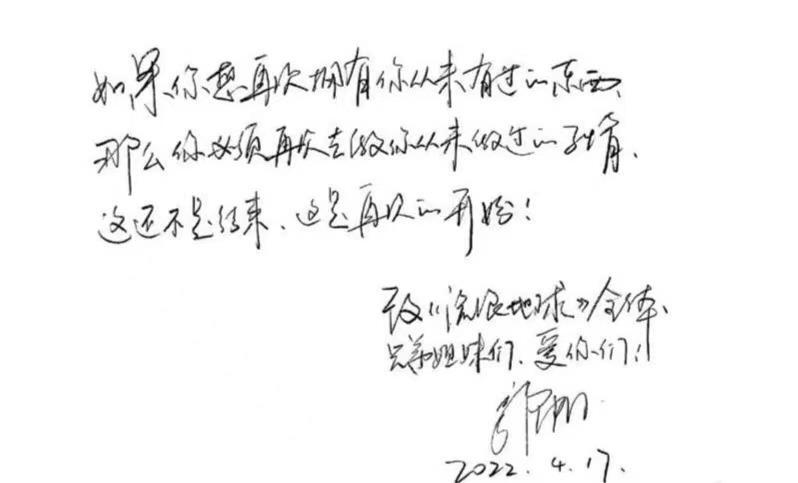 如果你想再次拥有你从来有过的东西、
那么你必须再次去做你从来做过的事情、
这还不是结束、这是再次的开始！
致《流浪地球》全体、
兄弟姐妹们、爱你们！
郭帆
2022.4.17.